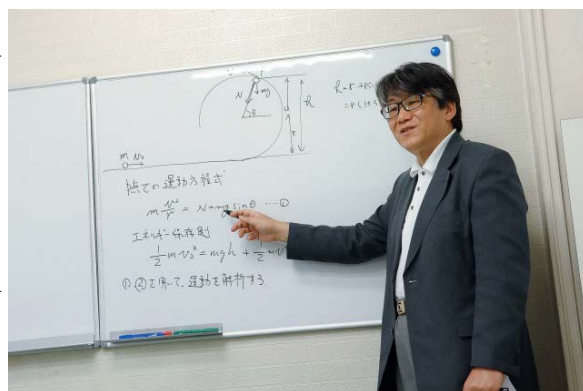 N
mg
θ
r
h
h = r + rsi
= r(1+s
m v₀
点での運動方程式
m v²/r = N + mg sinθ ……①
エネルギー保存則
1/2 m v₀² = mgh + 1/2 mv²
①,②を用いて、運動を解析する